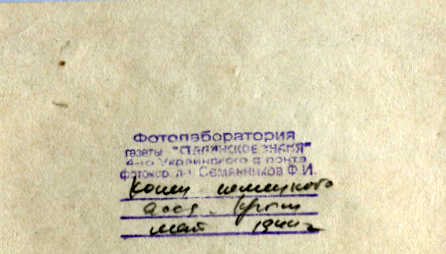 Фотолаборатория
газеты "СТАЛИНСКОЕ ЗНАМЯ"
4-го Украинского фронта
фотокор. л-т Семянников Ф.И.
Конец немецкого
Крым
май 1944 г